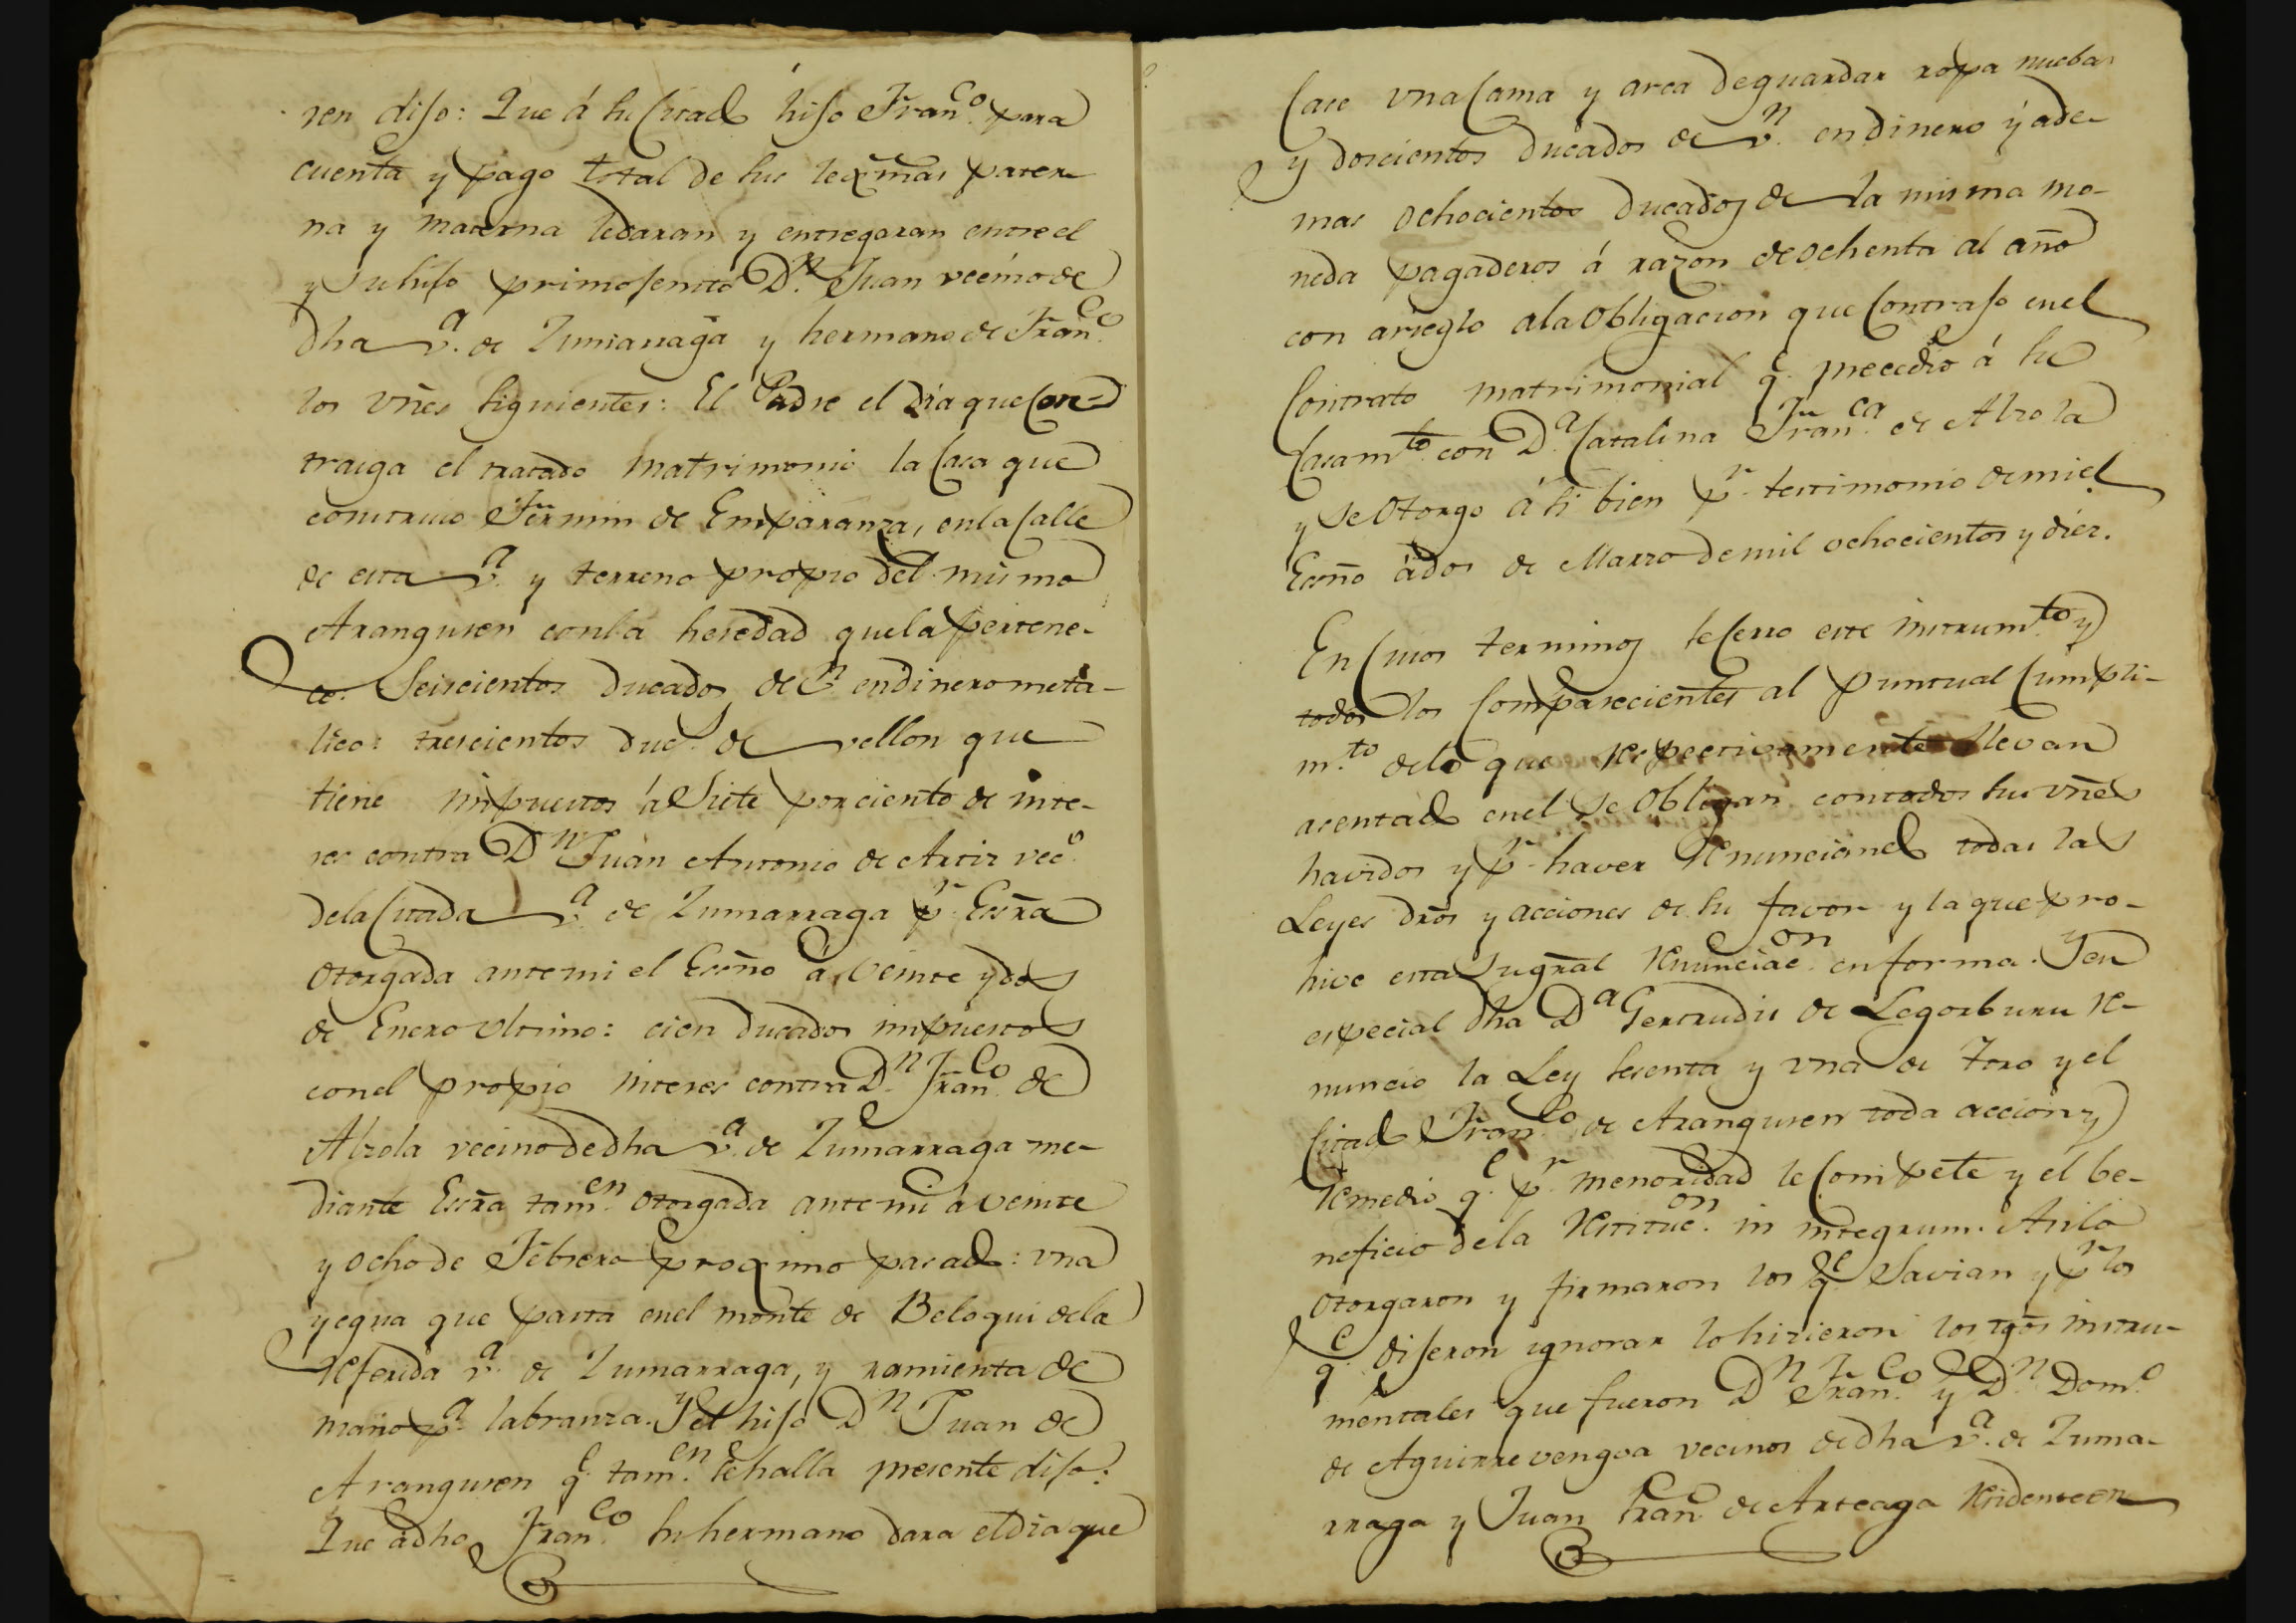 ren dijo: Que á su citado hijo Fran.co para
cuenta y pago total de sus lexmas pater
na y materna le daran y entregaran entre el
y su hijo primojenito D.n Juan vecino de
dha v.a de Zumarraga y hermano de Fran.co
los vñes siguientes: El Padre el dia que con-
traiga el tratado matrimonio la Casa que
construio Fermin de Emparanza, en la Calle
de esta v.a y terreno propio del mismo
Aranguren con la heredad que la pertene-
ce: Seiscientos ducados de v.n en dinero meta-
lico: trescientos duc.s de vellon que
tiene impuestos á Siete por ciento de inte-
res contra D.n Juan Antonio de Artiz vec.o
de la Citada v.a de Zumarraga p.r Essra
otorgada ante mi el Essño á veinte y dos
de Enero ultimo: cien ducados impuestos
con el propio interes contra D.n Fran.co de
Alzola vecino de dha v.a de Zumarraga me-
diante Essra tam.en otorgada ante mi á veinte
y ocho de Febrero proximo pasado: una
yegua que pasta en el monte de Beloqui de la
referida v.a de Zumarraga, y ramienta de
mano p.a labranza. Y el hijo D.n Juan de
Aranguren q.e tam.en se halla presente dijo:
Que a dho Fran.co su hermano dara el dia que
Case una Cama y arca de guardar ropa nueba
y doscientos ducados de v.n en dinero y ade-
mas ochocientos ducados de la misma mo-
neda pagaderos á razon de ochenta al año
con arreglo a la obligacion que Contrajo en el
Contrato matrimonial q.e precedio á su
Casam.to con D.a Catalina Fran.ca de Alzola
y se otorgo á si bien p.r testimonio de mi el
Essño á dos de Marzo de mil ochocientos y diez.
En cuios terminos se cerro este instrum.to y
todos los Comparecientes al puntual Cumpli-
m.to de lo que respectivamente llevan
asentado en el se obligan con todos sus vñes
havidos y p.r haver renunciando todas las
Leyes dros y acciones de su favor y la que pro-
hive esta su gral renunciac.on en forma. Y en
especial dha D.a Gertrudis de Legorburu re-
nuncio la Ley sesenta y una de Toro y el
Citado Fran.co de Aranguren toda accion y
remedio q.e p.r menoridad le Compete y el be-
neficio de la restituc.on in integrum. Asi lo
otorgaron y firmaron los q.e Savian y p.r los
q.e dijeron ignorar lo hicieron los tgos instru-
mentales que fueron D.n Fran.co y D.n Dom.o
de Aguirrevengoa vecinos de dha v.a de Zuma-
rraga y Juan Fran.co de Arteaga residente en